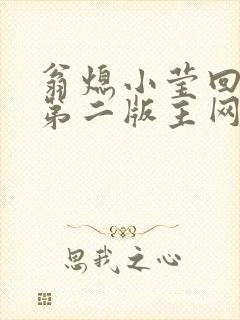 翁熄小莹回
第二版主网
思我之心